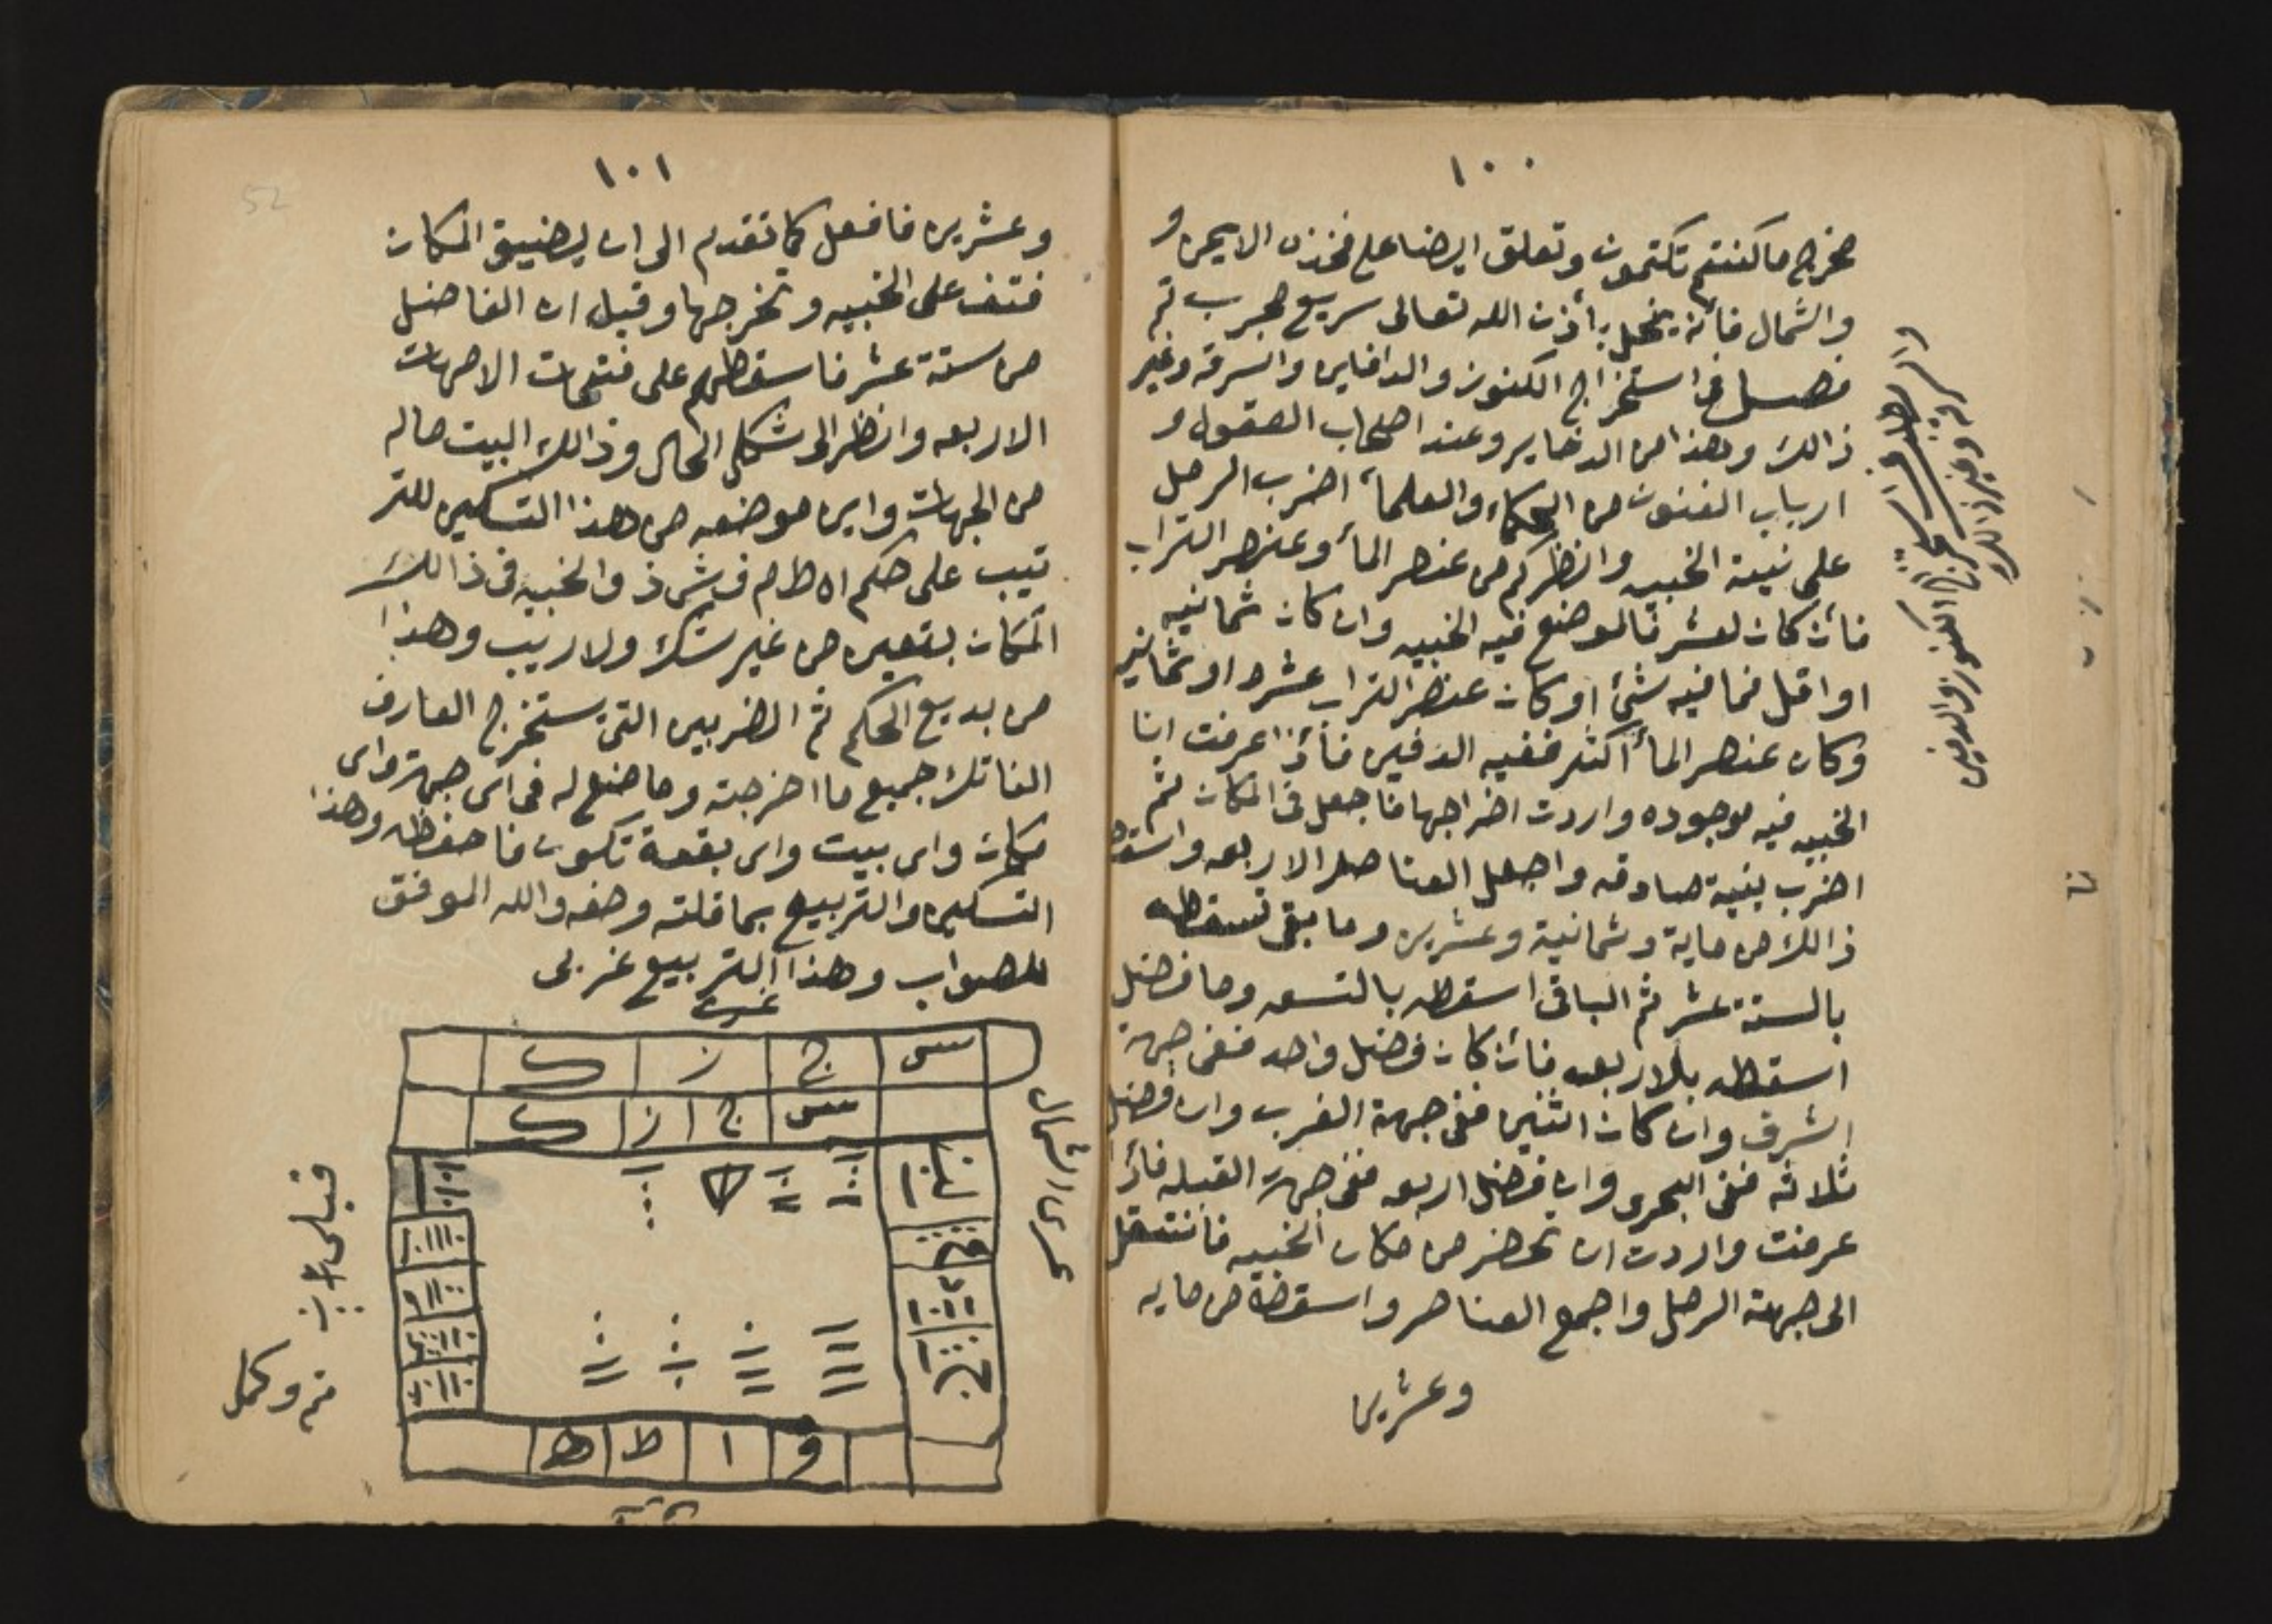 ١٠٠
مخرج ما كنتم تكتمون وتعلق ايضا على فخذه الايمن و
والشمال فانه ينحل باذن الله تعالى سريع مجرب تم
فصل فى استخراج الكنوز والدفاين والسرقه وغير
ذالك وهذا من الدخاير وعند اصحاب العقول و
ارباب الفنون من الحكاء والعلماء اضرب الرمل
على نيية الخبيه وانظر كم من عنصر الماء وعنصر التراب
فأن كان لعشر فالموضع فيه الخبيه وان كان ثمانيه
او اقل فما فيه شئ او كان عنصر التراب عشره او ثمانيه
وكان عنصر الماء اكثر ففيه الدفين فأذا عرفت ان
الخبيه فيه موجوده واردت اخراجها فاجعل فى المكان ثم
اضرب بنية صادقه واجعل العناصر الاربعه واسقط
ذالك من ماية وثمانية وعشرين وما بقى تسقطه
بالستة عشر ثم الباقى اسقطه بالتسعه وما فضل
اسقطه بلاربعه فأن كان فضل واحد ففى جهة
الشرق وان كان اثنين ففى جهة الغرب وان فضل
ثلاثه ففى البحرى وان فضل اربعه ففى جهة القبله فأذا
عرفت واردت ان تحضر من مكان الخبيه فأنتقل
الى جهة الرمل واجمع العناصر واسقطة من مايه
وعشرين
وغير ذالك
١٠١
وعشرين فافعل كما تقدم الى ان يضيق المكان
فتقف على الخبيه وتخرجها وقيل ان الفاضل
من ستة عشر فاسقطهم على فتحات الامهات
الاربعه وانظر الى شكل الحال وذالك البيت ماله
من الجهات واين موضعه من هذا التسكين للتر
تيب على حكم اه ط م ف ش ذ والخبيه فى ذالك
المكان بتعين من غير شك ولا ريب وهذا
من بديع الحكم ثم الضربين التى ستخرج العارف
الفاتك جميع ما اخرجته وما ضع له فى اى جهة واى
مكان واى بيت واى بقعة تكون فاحفظه وهذا
التسكين والتربيع بما قلته وصفه والله الموفق
للصواب وهذا التربيع غربى
غرب
س ج ز ك
س ج ز ك
و ا ط ه
قبلى
تم وكمل